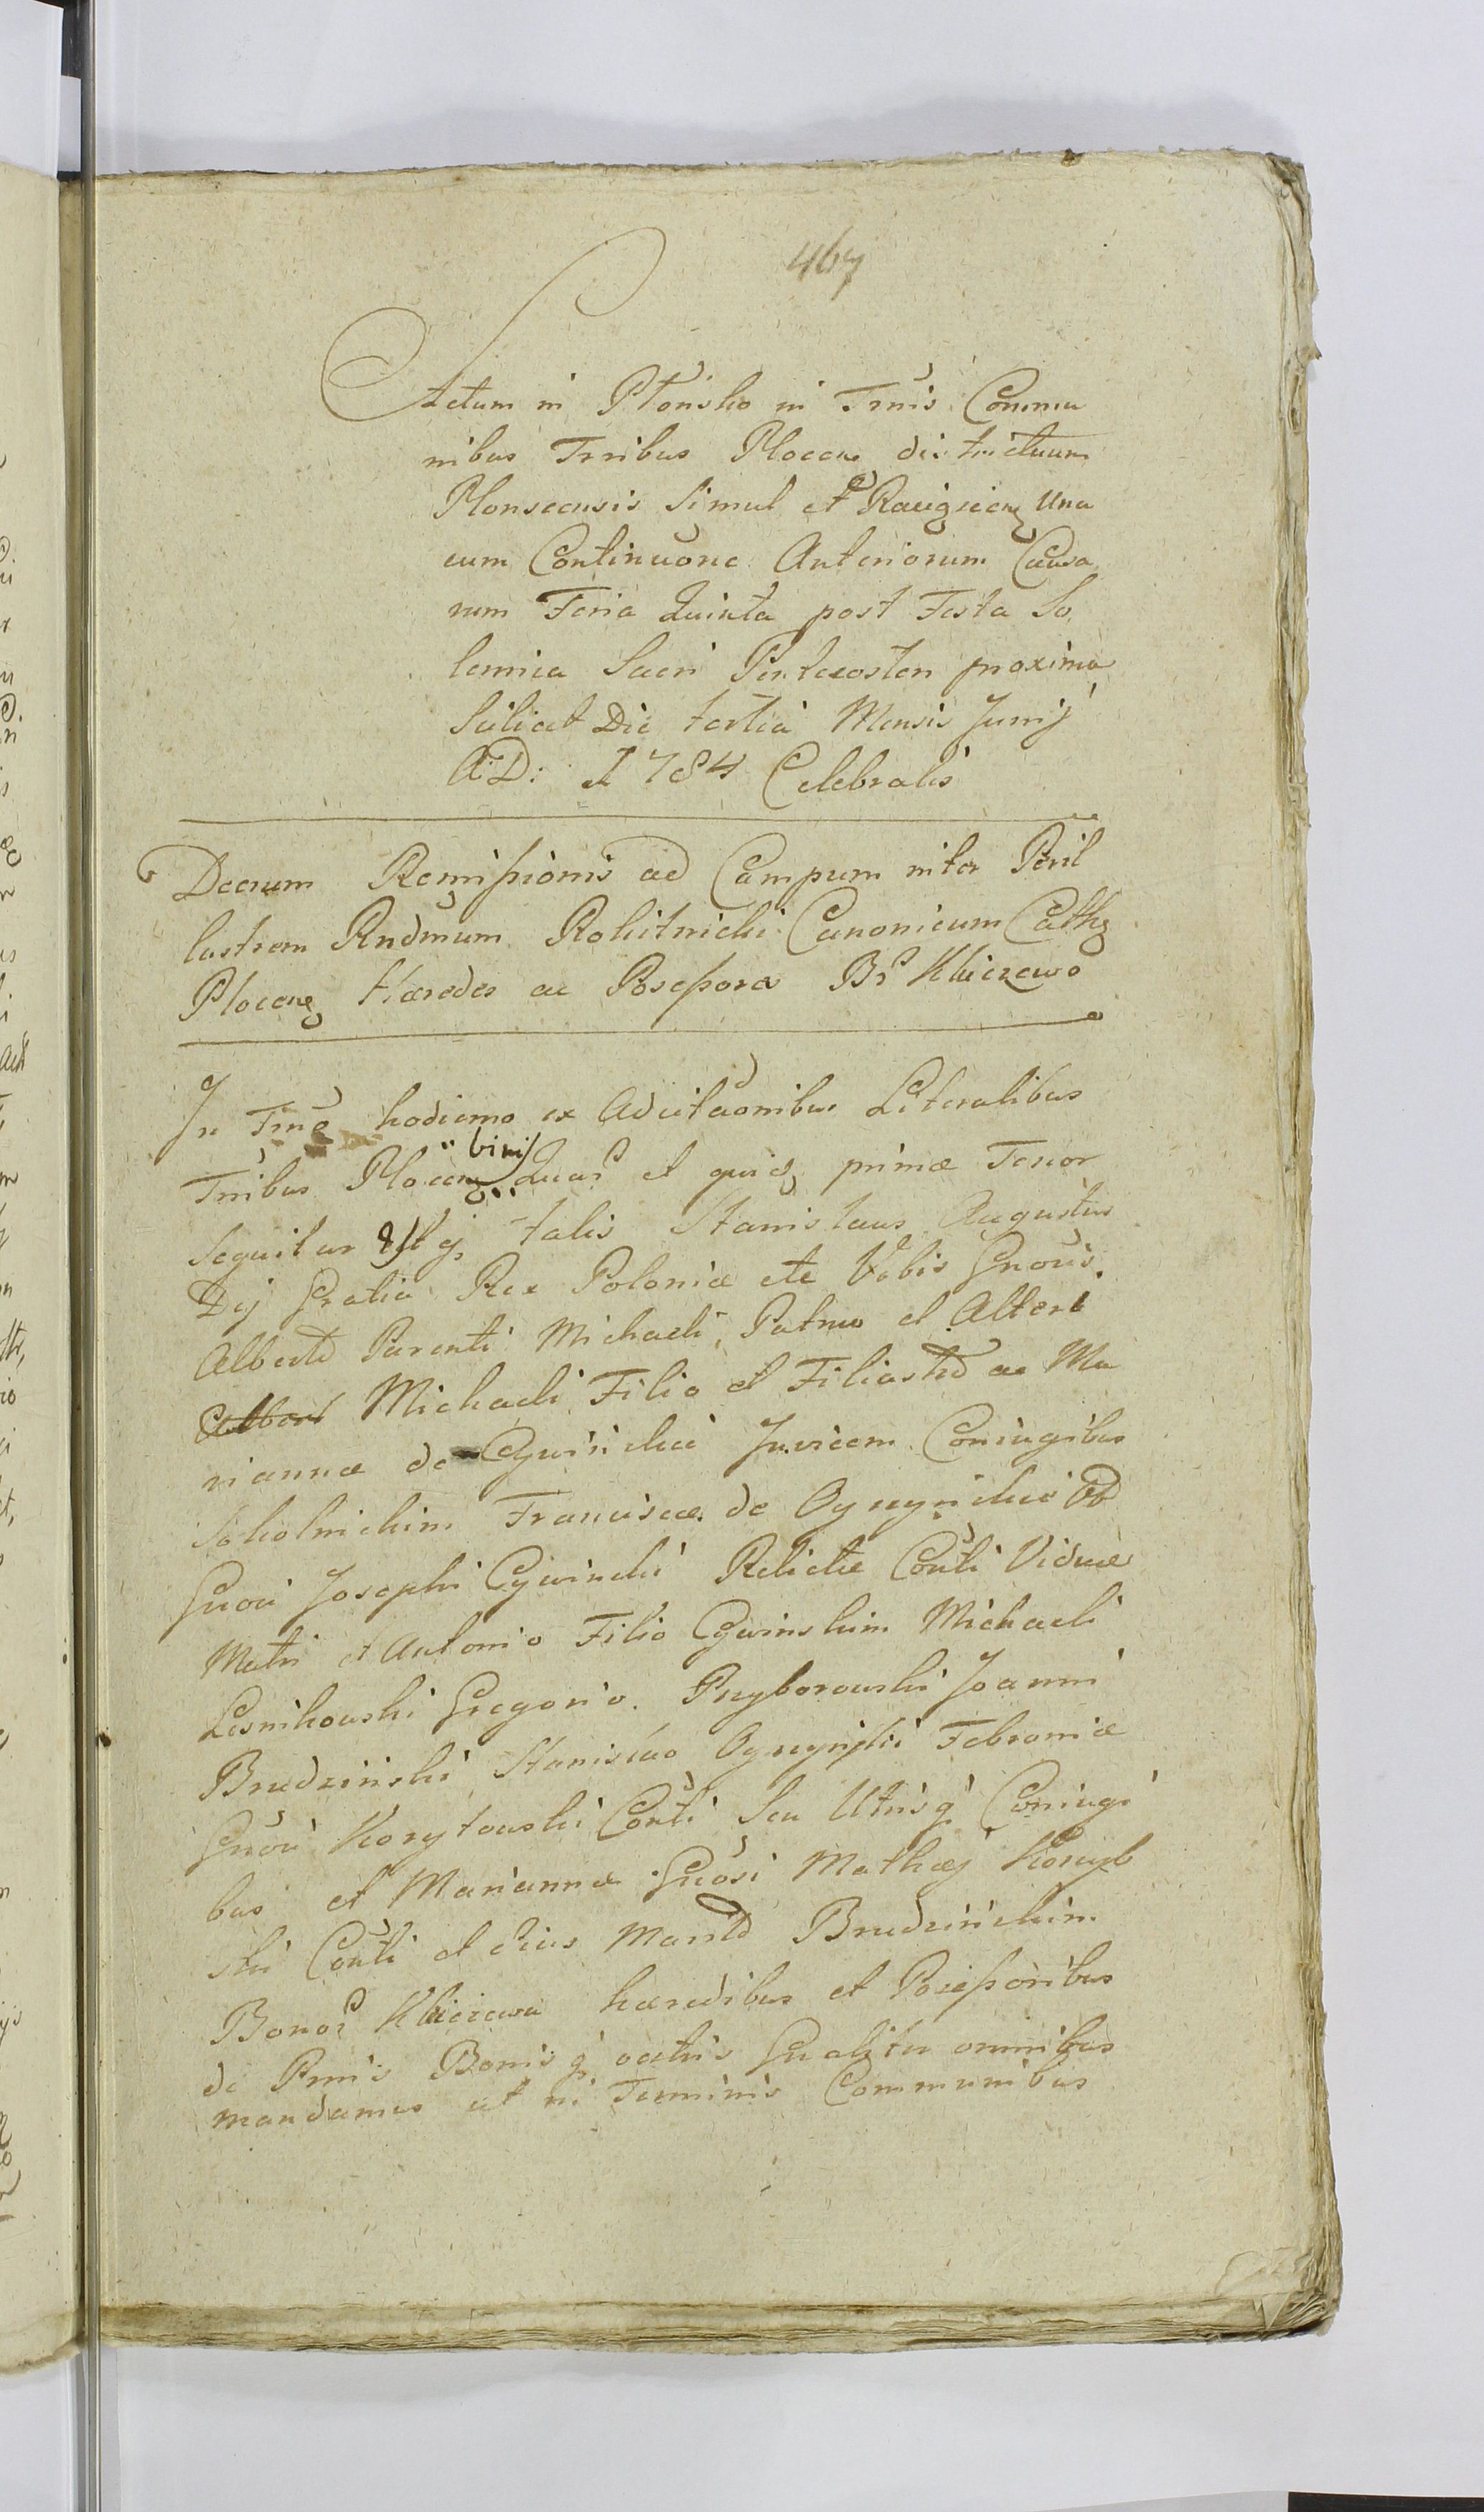 467
Actum in Płońsko in Trnis Commu
nibus Trribus Plocen districtuum
Plonscensis Simul et Raciąnen una
cum Continuõne Anteriorum Causa
rum Feria Quinta post Festa So
lennia Sacri Pentecosten proxima
Scilicet Die tertia Mensis Junij
A: D: 1784 Celebratis
Decrum Remissionis ad Campum inter Peril
lustrem Rndmum Rokitnicki Canonicum Cath
Plocen Hæredes ac Possessores Br Kliczewo
In Trno hodierno ex Adcitaõnibus Literalibus
Trribus Plocen binis Quar et quid primæ Tenor
Sequitur Estq talis Stanislaus Augustus
Dej Gratia Rex Poloniæ etc Vobis Gnosis
Alberto Parenti Michaeli Patruo et Alteri
Michaeli Filio et Filiasto ac Ma
riannæ de Cywińskie Invicem Coniugibus
Sokolnickim Franciscæ de Ogrzyńskie
Gnosi Josephi Cywiński Relictæ Conti Viduæ
Matri et Antonio Filio Cywinskim Michaeli
Lesnikowski Gregorio Przyborowski Joanni
Brudziński Stanislao Febroniæ
Gnosi Korytowski Conti Seu Utrisq Coniugi
bus et Mariannæ Gnosi Mathæj
ski Conti et Eius Marito Brudzińskim
Bonor Kliczewa hæredibus et Possessoribus
de Prnis Bonisq vestris Gnaliter omnibus
mandamus ut in Terminis Communibus